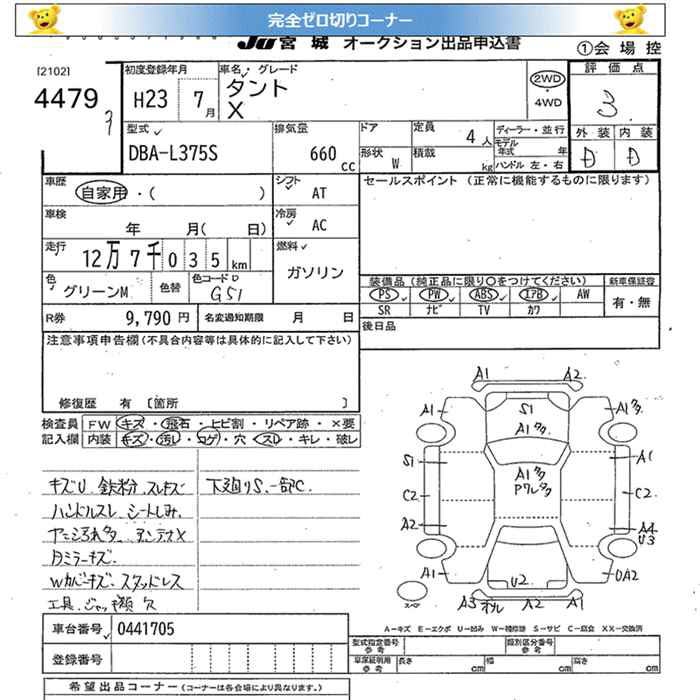 完全ゼロ切りコーナー
JU 宮城 オークション出品申込書
①会場控
[2102]
4479
初度登録年月
H23 7月
車名・グレード
タント
X
2WD
・
4WD
評価点
3
外装 内装
D D
型式
DBA-L375S
排気量
660 cc
ドア
形状 W
定員 4人
積載 kg
ディーラー・並行
モデル年式 年
ハンドル 左・右
車歴
自家用・( )
シフト
AT
セールスポイント (正常に機能するものに限ります)
車検
年 月( 日)
冷房
AC
走行
12万7千035km
燃料
ガソリン
色
グリーンM
色替
色コードD
G51
装備品 (純正品に限り○をつけてください) 新車保証書
PS PW ABS エアB AW 有・無
SR ナビ TV カワ
R券 9,790円 名変通知期限 月 日
後日品
注意事項申告欄 (不具合内容等は具体的に記入して下さい)
修復歴 有 〔箇所 〕
検査員 FW キズ・飛石・ヒビ割・リペア跡・×要
記入欄 内装 キズ・汚レ・コゲ・穴・スレ・キレ・破レ
キズU 鉄粉 スレキズ
下廻りS、一部C.
ハンドルスレ シートしみ
アンテナX
ミラーキズ.
Wカバーキズ スタッドレス
工具、ジャッキ欠
A1 A2
A1 S1 A1
A1
S1 A1 A1
C2 C2
A2 A4
U3
A1 U2 UA2
スペア A3 A2 A1
A=キズ E=エクボ U=凹み W=補修跡 S=サビ C=腐食 XX=交換済
車台番号 0441705
型式指定番号 参考 類別区分番号 参考
登録番号
車庫証明用 参考 長さ cm 幅 cm 高さ cm
希望出品コーナー (コーナーは各会場により異なります。)